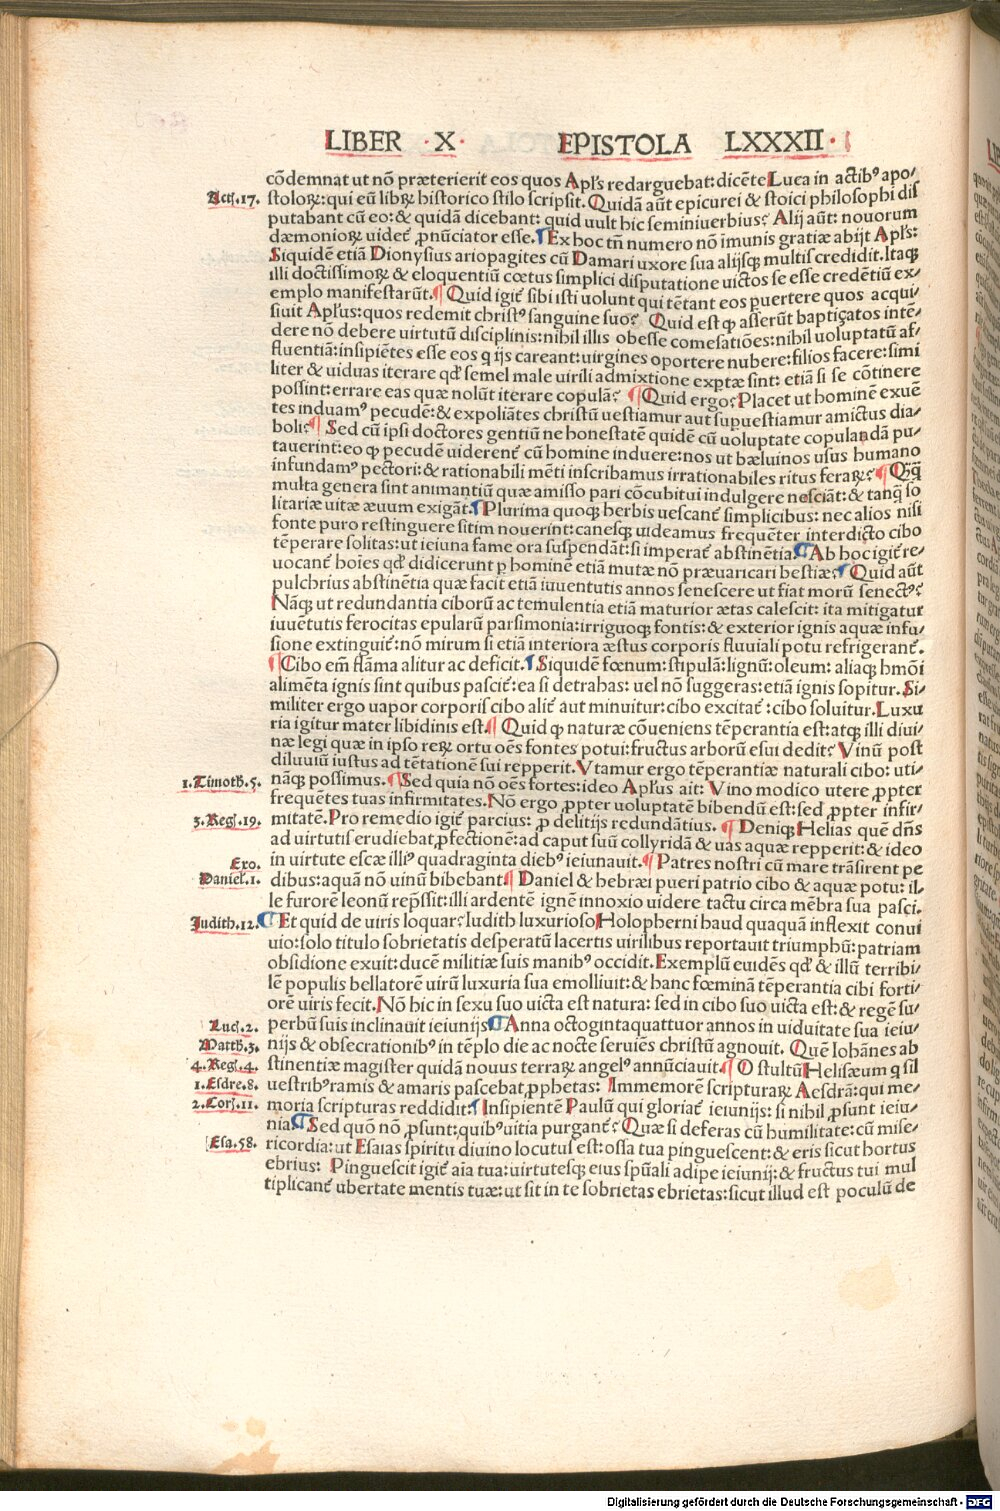 LIBER ·X· EPISTOLA LXXXII·
cõdemnat ut nõ præterierit eos quos Apl's redarguebat: dicẽte Luca in actibꝰ apo⸗
Act. 17. stoloꝝ: qui eũ libꝝ historico stilo scripsit. Quidã aũt epicurei & stoici philosophi dis
putabant cũ eo: & quidã dicebant: quid uult hic seminiuerbius? Alij aũt: nouorum
dæmonioꝝ uidet̃ ꝓnũciator esse. ¶ Ex hoc tñ numero nõ imunis gratiæ abijt Apl's:
Siquidẽ etiã Dionysius ariopagites cũ Damari uxore sua alijsqꝫ multis credidit. Itaqꝫ
illi doctissimoꝝ & eloquentiũ cœtus simplici disputatione uictos se esse credẽtiũ ex⸗
emplo manifestarũt. ¶ Quid igit̃ sibi isti uolunt qui tẽtant eos ꝑuertere quos acqui⸗
siuit Apl'us: quos redemit christꝰ sanguine suo? Quid est ꝙ asserũt baptiçatos intẽ⸗
dere nõ debere uirtutũ disciplinis: nihil illis obesse comesatiões: nihil uoluptatũ af⸗
fluentiã: insipiẽtes esse eos q ijs careant: uirgines oportere nubere: filios facere: simi
liter & uiduas iterare qđ semel male uirili admixtione exptæ sint: etiã si se cõtinere
possint: errare eas quæ nolũt iterare copulã? ¶ Quid ergo? Placet ut hominẽ exuẽ
tes induamꝰ pecudẽ: & expoliãtes christũ uestiamur aut supuestiamur amictus dia⸗
boli? ¶ Sed cũ ipsi doctores gentiũ ne honestatẽ quidẽ cũ uoluptate copulandã pu⸗
tauerint: eo ꝙ pecudẽ uiderent̃ cũ homine induere: nos ut bæluinos usus humano
infundamꝰ pectori: & rationabili mẽti inscribamus irrationabiles ritus feraꝝ? ¶ Qq̃
multa genera sint animantiũ quæ amisso pari cõcubitui indulgere nesciãt: & tanq̃ so
litariæ uitæ æuum exigãt: ¶ Plurima quoqꝫ herbis uescant̃ simplicibus: nec alios nisi
fonte puro restinguere sitim nouerint: canesqꝫ uideamus frequẽter interdicto cibo
tẽperare solitas: ut ieiuna fame ora suspendãt: si imperat̃ abstinẽtia. ¶ Ab hoc igit̃ re⸗
uocant̃ hoĩes qđ didicerunt ꝑ hominẽ etiã mutæ nõ præuaricari bestiæ? ¶ Quid aũt
pulchrius abstinẽtia quæ facit etiã iuuentutis annos senescere ut fiat morũ senectꝰ?
Nãqꝫ ut redundantia ciborũ ac temulentia etiã maturior ætas calescit: ita mitigatur
iuuẽtutis ferocitas epularũ parsimonia: irriguoqꝫ fontis: & exterior ignis aquæ infu⸗
sione extinguit̃: nõ mirum si etiã interiora æstus corporis fluuiali potu refrigerant̃.
¶ Cibo em̃ flãma alitur ac deficit. ¶ Siquidẽ fœnum: stipulã: lignũ: oleum: aliaqꝫ hmõi
alimẽta ignis sint quibus pascit̃: ea si detrahas: uel nõ suggeras: etiã ignis sopitur. Si⸗
militer ergo uapor corporis cibo alit̃ aut minuitur: cibo excitat̃: cibo soluitur. Luxu
ria igitur mater libidinis est. ¶ Quid ꝙ naturæ cõueniens tẽperantia est: atqꝫ illi diui⸗
næ legi quæ in ipso reꝝ ortu oẽs fontes potui: fructus arborũ esui dedit? Vinũ post
diluuiũ iustus ad tẽtationẽ sui repperit. Vtamur ergo tẽperantiæ naturali cibo: uti⸗
1. Timoth. 5. nãqꝫ possimus. ¶ Sed quia nõ oẽs fortes: ideo Aplus ait: Vino modico utere ꝓpter
frequẽtes tuas infirmitates. Nõ ergo ꝓpter uoluptatẽ bibendũ est: sed ꝓpter infir⸗
3. Reg. 19. mitatẽ. Pro remedio igit̃ parcius: ꝓ delitijs redundãtius. ¶ Deniqꝫ Helias quẽ dñs
ad uirtutis erudiebat ꝑfectionẽ: ad caput suũ collyridã & uas aquæ repperit: & ideo
Exo. in uirtute escæ illiꝰ quadraginta diebꝰ ieiunauit. ¶ Patres nostri cũ mare trãsirent pe
Daniel. 1. dibus: aquã nõ uinũ bibebant. ¶ Daniel & hebræi pueri patrio cibo & aquæ potu: il⸗
le furorẽ leonũ rep̃ssit: illi ardentẽ ignẽ innoxio uidere tactu circa mẽbra sua pasci.
Judith. 12. ¶ Et quid de uiris loquar? Iudith luxurioso Holopherni haud quaquã inflexit conui
uio: solo titulo sobrietatis desperatũ lacertis uirilibus reportauit triumphũ: patriam
obsidione exuit: ducẽ militiæ suis manibꝰ occidit. Exemplũ euidẽs qđ & illũ terribi⸗
lẽ populis bellatorẽ uirũ luxuria sua emolliuit: & hanc fœminã tẽperantia cibi forti⸗
orẽ uiris fecit. Nõ hic in sexu suo uicta est natura: sed in cibo suo uicta est: & regẽ su⸗
Luc. 2. perbũ suis inclinauit ieiunijs. ¶ Anna octogintaquattuor annos in uiduitate sua ieiu⸗
Matth. 3. nijs & obsecrationibꝰ in tẽplo die ac nocte seruiẽs christũ agnouit. Quẽ Iohãnes ab
4. Reg. 4. stinentiæ magister quidã nouus terraꝝ angelꝰ annũciauit. ¶ O stultũ Helisæum q sil
1. Esdre. 8. uestribꝰ ramis & amaris pascebat ꝓphetas: Immemorẽ scripturaꝝ Aesdrã: qui me⸗
2. Cor. 11. moria scripturas reddidit: ¶ Insipientẽ Paulũ qui gloriat̃ ieiunijs: si nihil ꝓsunt ieiu⸗
nia. ¶ Sed quõ nõ ꝓsunt: quibꝰ uitia purgant̃? Quæ si deferas cũ humilitate: cũ mise⸗
Esa. 58. ricordia: ut Esaias spiritu diuino locutus est: ossa tua pinguescent: & eris sicut hortus
ebrius: Pinguescit igit̃ aĩa tua: uirtutesqꝫ eius spũali adipe ieiunij: & fructus tui mul
tiplicant̃ ubertate mentis tuæ: ut sit in te sobrietas ebrietas: sicut illud est poculũ de
Digitalisierung gefördert durch die Deutsche Forschungsgemeinschaft - DFG